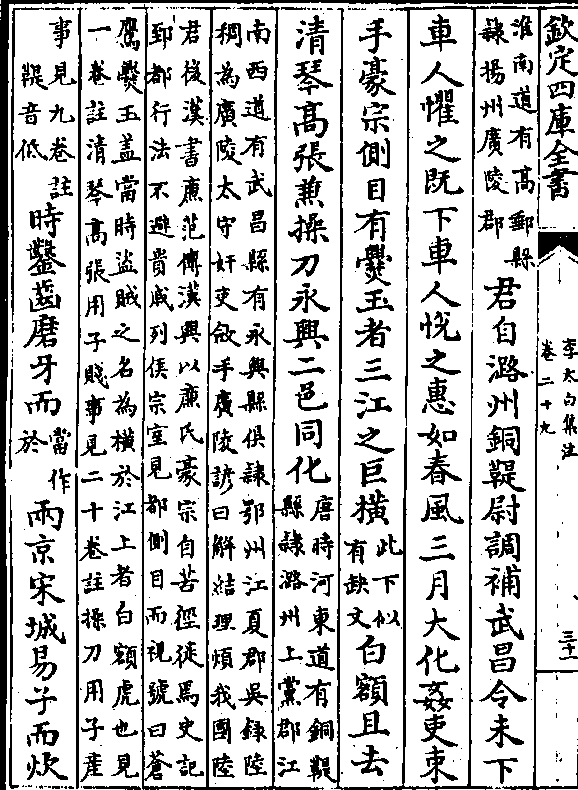 欽定四庫全書
李太白集注
卷二十九
三十一
淮南道有高郵縣
隷揚州廣陵郡
君自潞州銅鞮尉調補武昌令未下
車人懼之既下車人悅之惠如春風三月大化姦吏束
手豪宗側目有爨玉者三江之巨橫
此下似
有缺文
白額且去
清琴高張兼操刀永興二邑同化
唐時河東道有銅鞮
縣隷潞州上黨郡江
南西道有武昌縣有永興縣俱隷鄂州江夏郡吳録陸
稠為廣陵太守奸吏斂手廣陵諺曰解結理煩我國陸
君後漢書亷范傳漢興以亷氏豪宗自苦陘徙焉史記
郅都行法不避貴戚列侯宗室見都側目而視號曰蒼
鷹爨玉盖當時盜賊之名為橫於江上者白額虎也見
一卷註清琴高張用子賤事見二十卷註操刀用子產
事見九卷註
鞮音低
時鑿齒磨牙而
當作
於
兩京宋城易子而炊